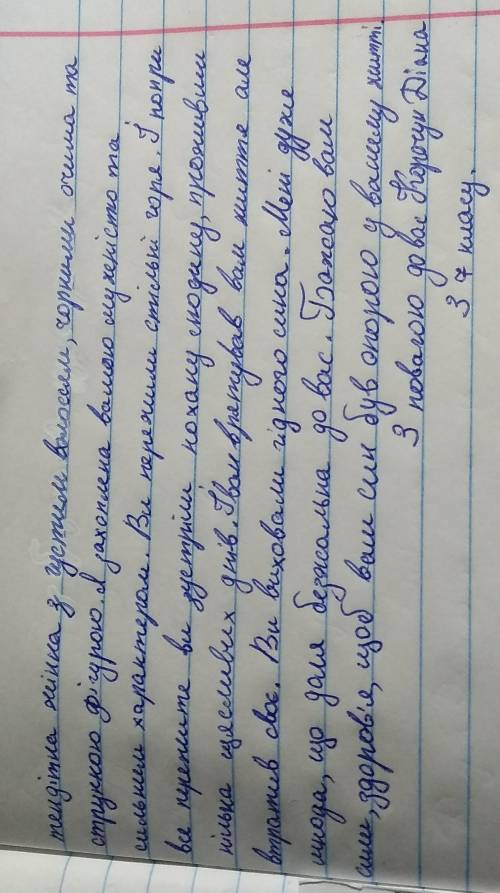 тендітна жінка з густим волоссям, чорними очима та
стрункою фігурою. Я захоплена вашою мужністю та
сильним характером. Ви пережили стільки горя. І попри
все пустите ви зустріли кохану людину, проживши
кілька щасливих днів. Іван врятував вам життя але
втратив своє. Ви виховали гідного сина. Мені дуже
шкода, що доля безжальна до вас. Бажаю вам
сили, здоров'я, щоб ваш син був опорою у вашому житті.
З повагою до вас Корочун Діана
З 7 класу.